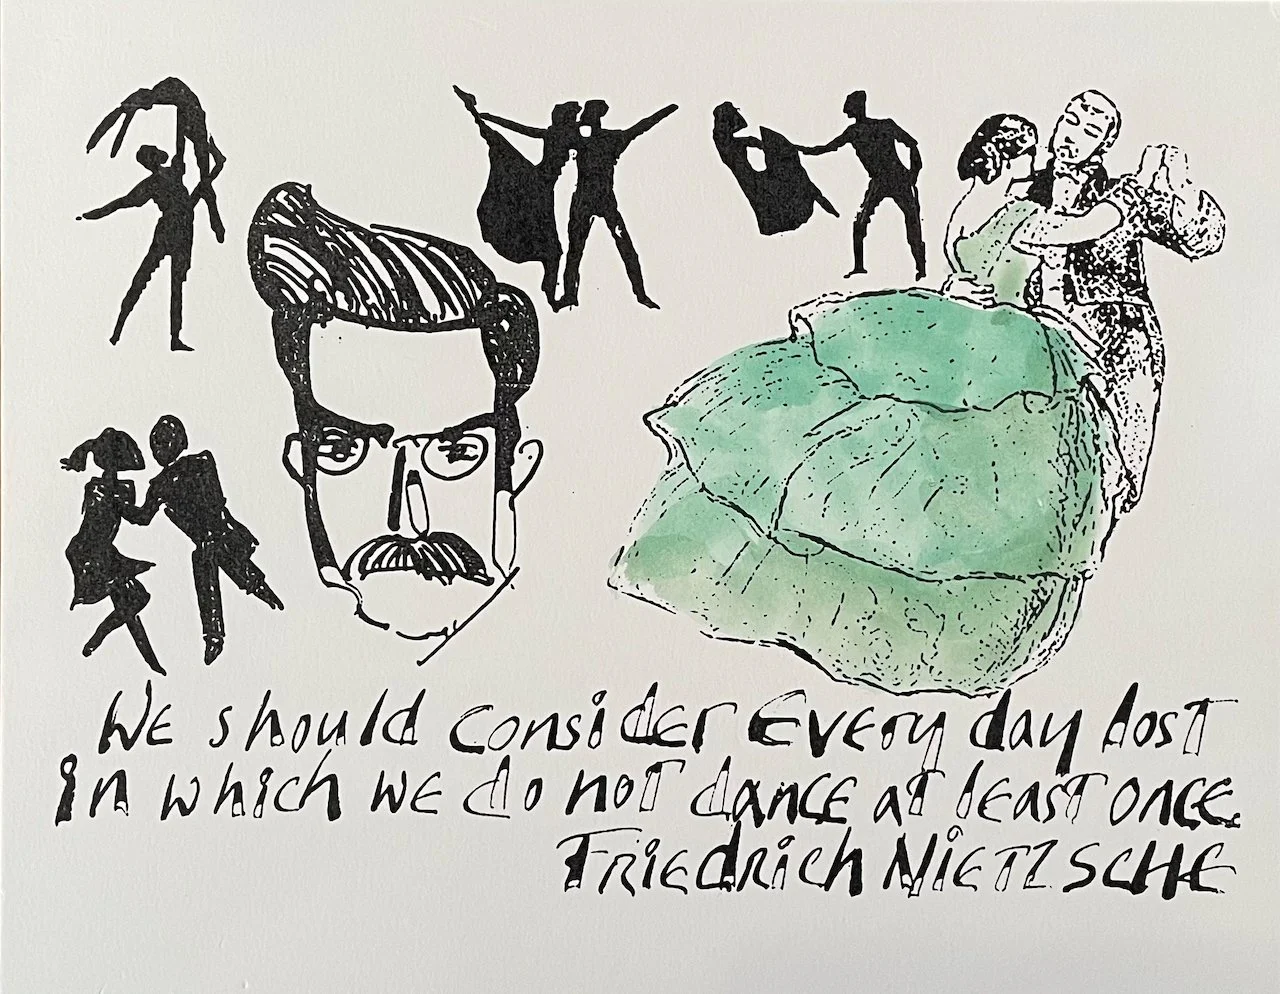 We should consider Every day lost
in which we do not dance at least once.
Friedrich Nietzsche